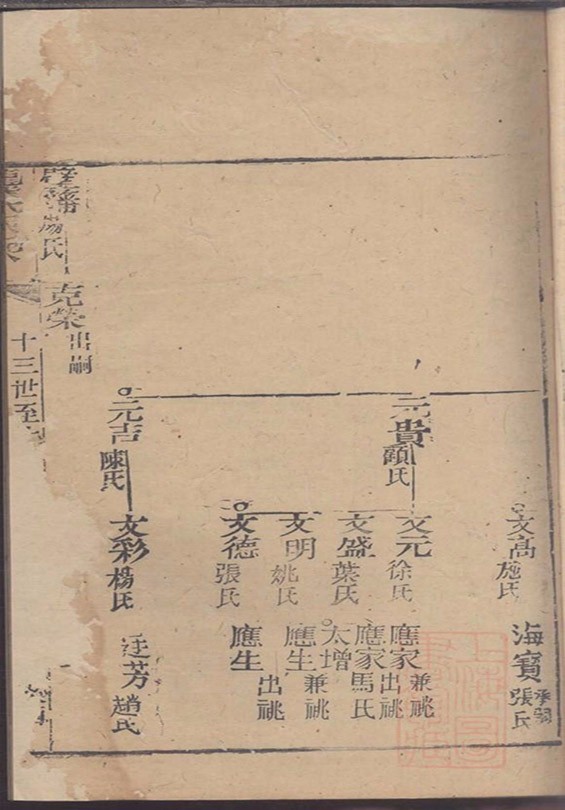 文高 施氏
海寶 張氏 承嗣
元貴 顧氏
文元 徐氏
應家 兼祧
文盛 葉氏
應家 出祧
馬氏
太增
文明 姚氏
應生 兼祧
文德 張氏
應生 出祧
元吉 陳氏
文彩 楊氏
廷芳 趙氏
克榮 出嗣
楊氏
十三世至